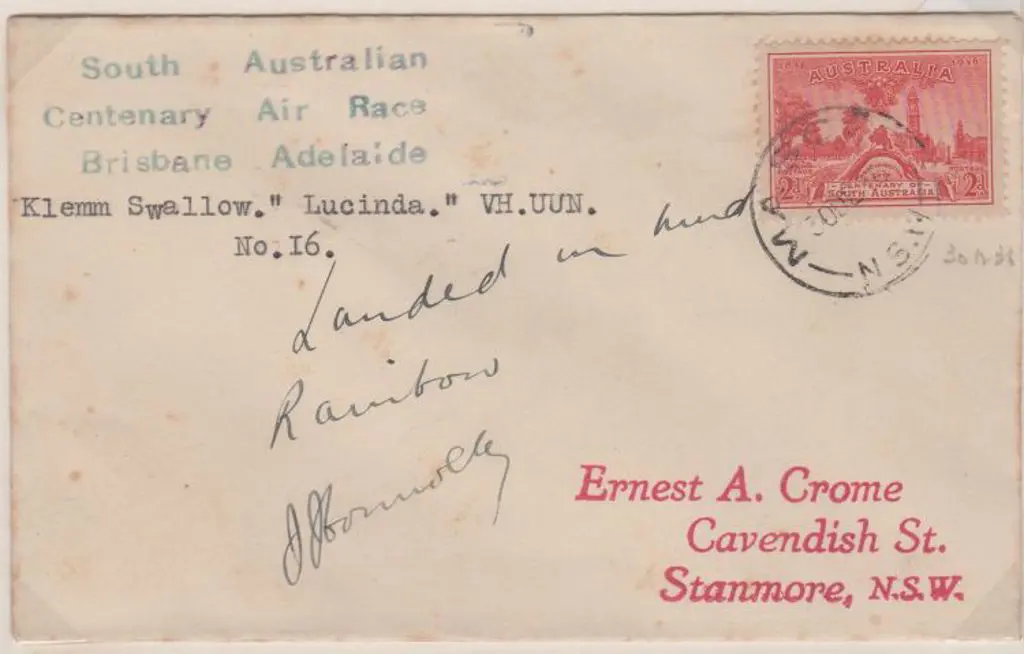 South Australian
Centenary Air Race
Brisbane Adelaide
Klemm Swallow." Lucinda." VH.UUN.
No.I6.
Landed in mud
Rainbow
JJConnolley
1836 1936
AUSTRALIA
2d 2d
CENTENARY OF
SOUTH AUSTRALIA
MASCOT
N.S.W
Ernest A. Crome
Cavendish St.
Stanmore, N.S.W.